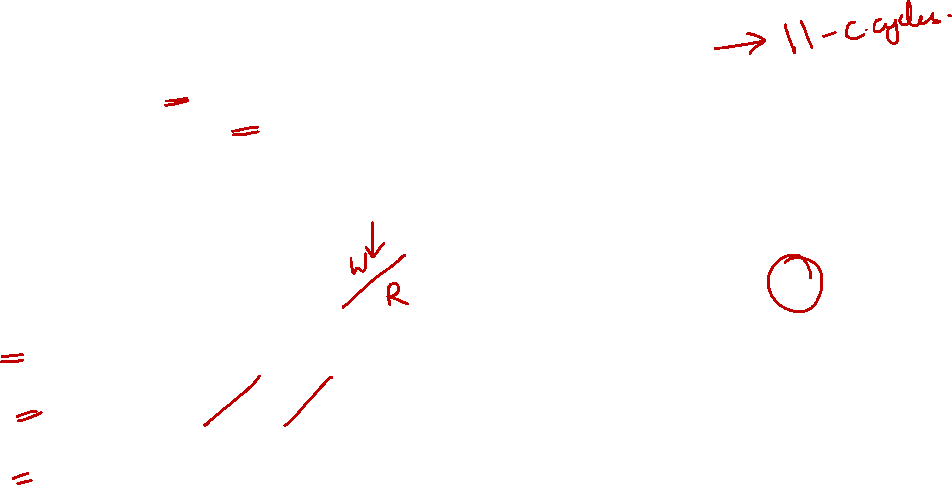 → 11 - c. cycles.
W/R